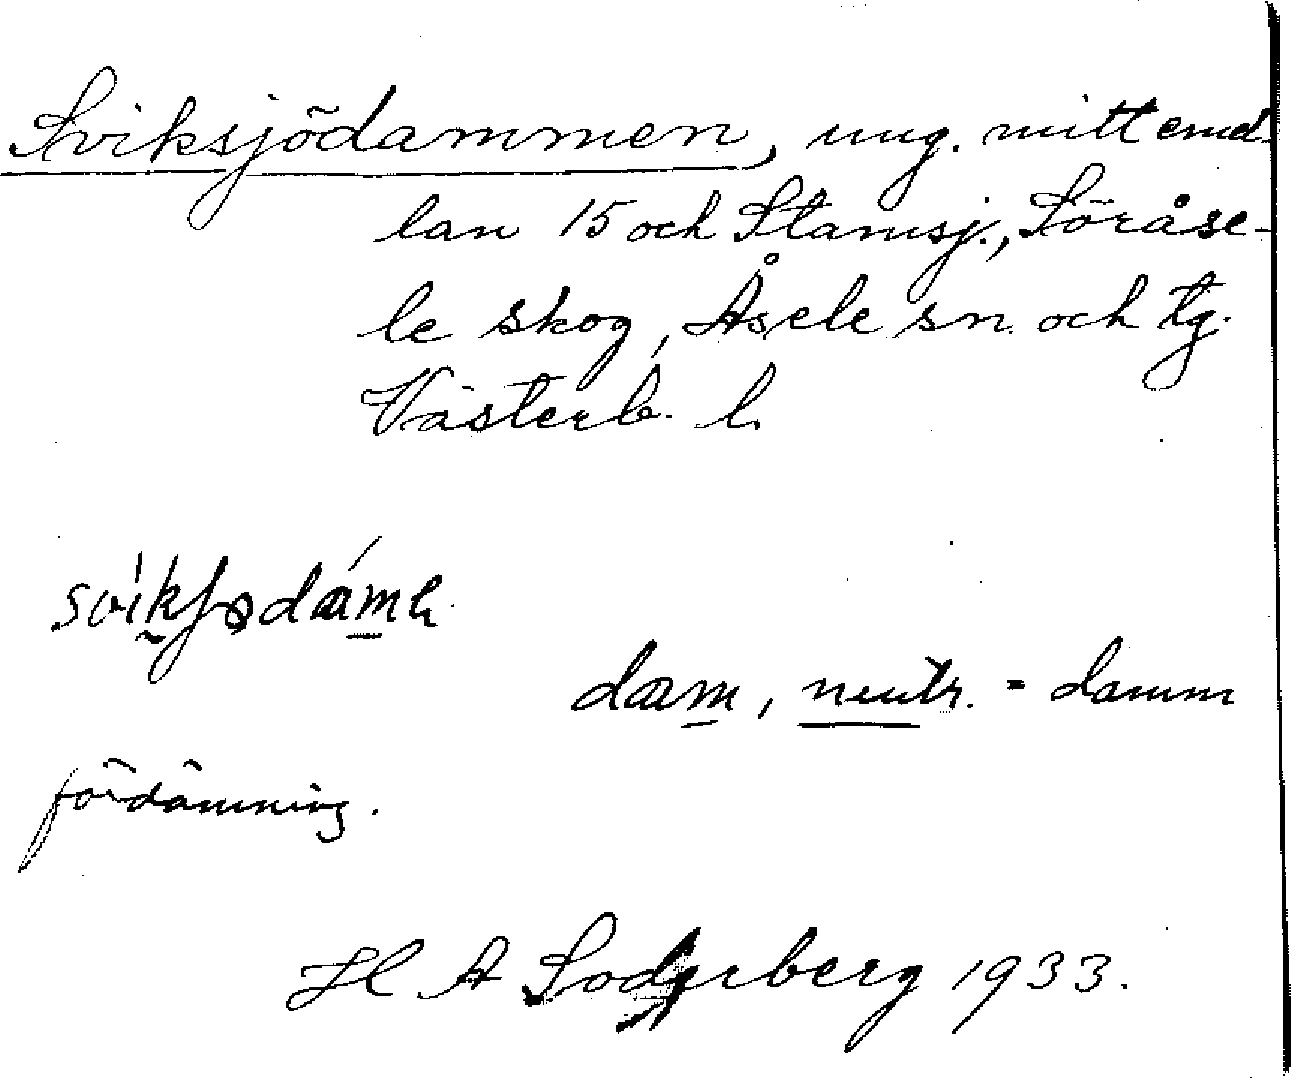 Sviksjödammen, ung. mitt emel-
lan 15 och Stamsj., Söråse-
le skog, Åsele sn. och tg.
Västerb. l.
dam, neutr. = damm
fördämning.
H A Söderberg 1933.